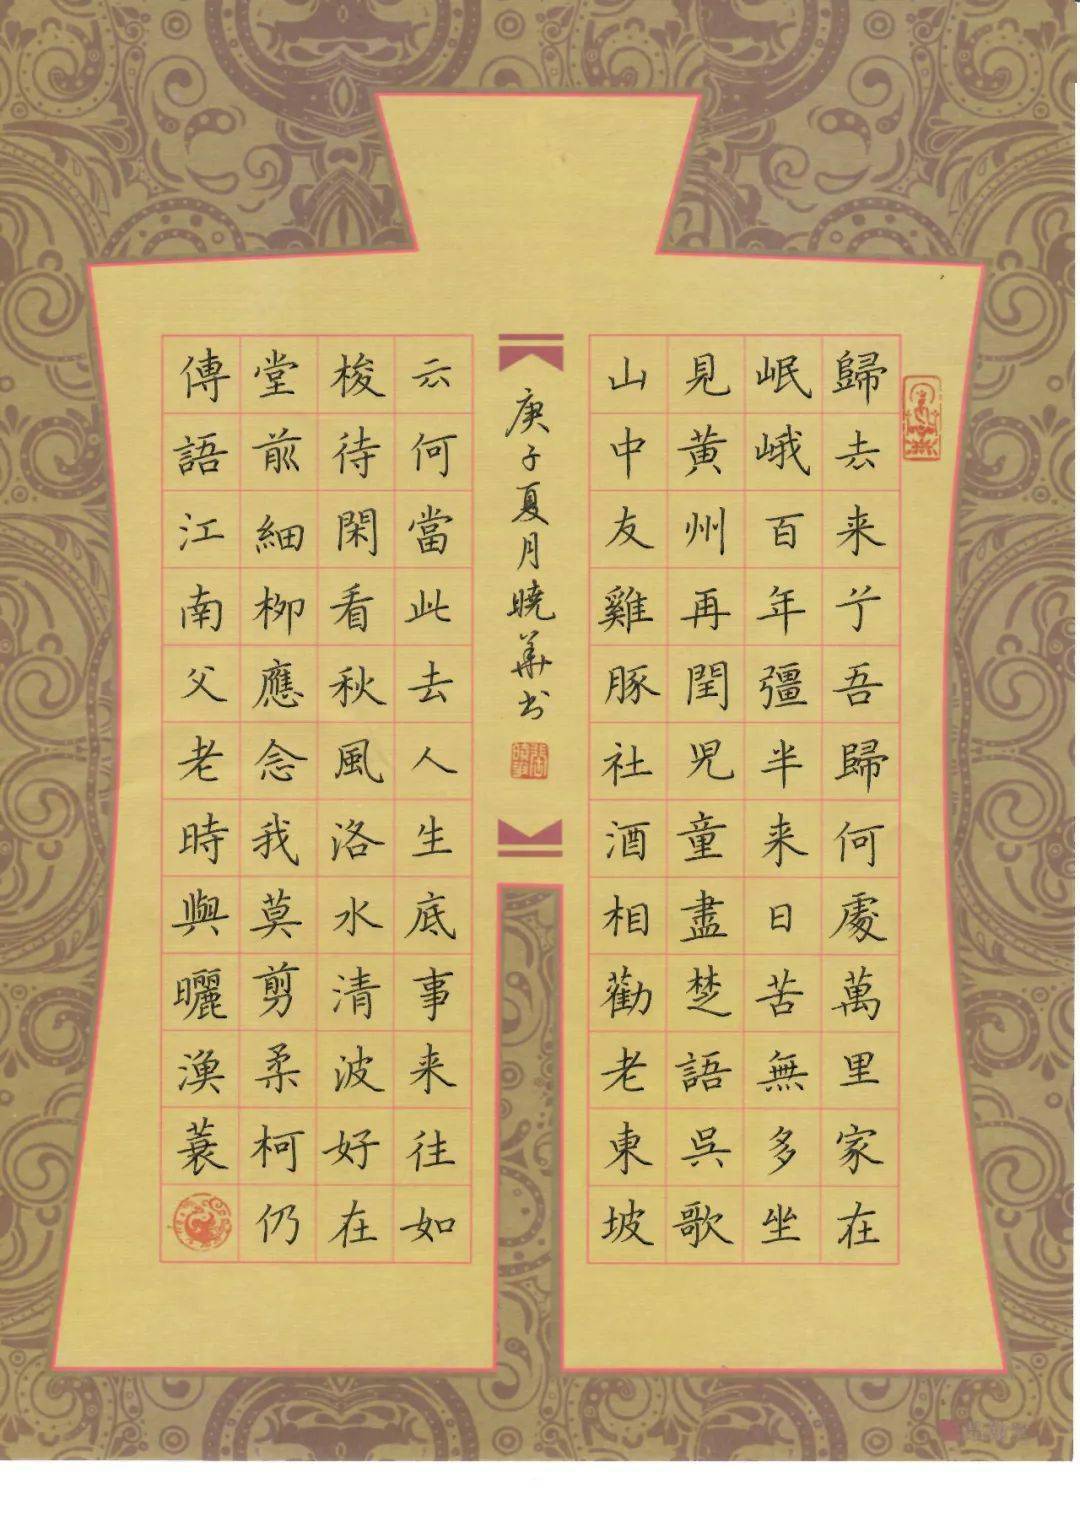 歸去来兮吾歸何處萬里家在
岷峨百年彊半来日苦無多坐
見黄州再閏児童盡楚語吳歌
山中友雞豚社酒相勸老東坡
云何當此去人生底事来往如
梭待閑看秋風洛水清波好在
堂前細柳應念我莫剪柔柯仍
傳語江南父老時與曬漁蓑
庚子夏月曉華书